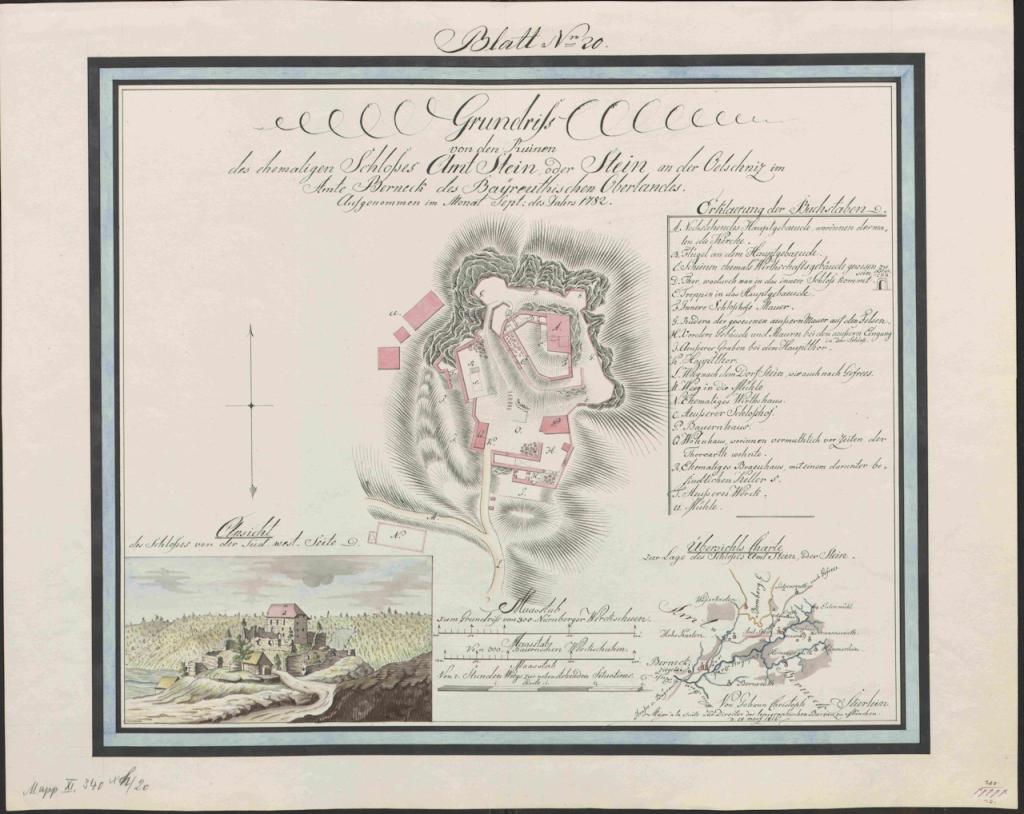 Blatt Nro 20.
Grundriss
von den Ruinen
des ehemaligen Schlosses Amt Stein, oder Stein an der Oelschniz im
Amte Berneck des Bayreuthischen Oberlandes.
Aufgenommen im Monat Sept: des Jahrs 1782.
Erklaerung der Buchstaben
A. Nochstehendes Hauptgebaeude, worinnen derma-
len die Kirche.
B. Flügel an dem Hauptgebaeude.
C. Scheinen ehemals Wirthschaftsgebäude gewesen zu
sein
D. Thor, wodurch man in das innere Schloss kommt
E. Treppen in das Hauptgebaeude.
F. Innere Schlosshofs Mauer.
G. Rudera der gewesenen aeussern Mauer auf den Felsen.
H. Vordere Gebäude und Mauern bei dem aeussern Eingang
in das Schloss.
I. Aeusserer Graben bei dem Hauptthor.
K. Hauptthor.
L. Weg nach dem Dorf Stein, wie auch nach Gefrees.
M. Weeg in die Mühle
N. Ehemaliges Wirthshaus.
O. Aeusserer Schlosshof.
P. Bauernhaus.
Q. Wohnhaus, worinnen vermuthlich vor Zeiten der
Thorwarth wohnte.
R. Ehemaliges Brauhaus, mit einem darunter be-
findlichen Keller S.
T. Aeusseres Werck.
U. Mühle.
u.
A.
H.
O.
N.
M.
Ansicht
des Schlosses von der Süd-west-Seite
Maasstab
zum Grundriss von 300 Nürnberger Werckschuen.
Maasstab
Von 300. Baierischen Werckschuhen.
Maasstab
Von 2. Stunden Wegs zur nebenstehenden Situations
Charte
Übersichts Charte
zur Lage des Schlosses Amt Stein, oder Stein.
Berneck
Von Johann Christoph Stierlein.
Mapp XI. 340 h/20